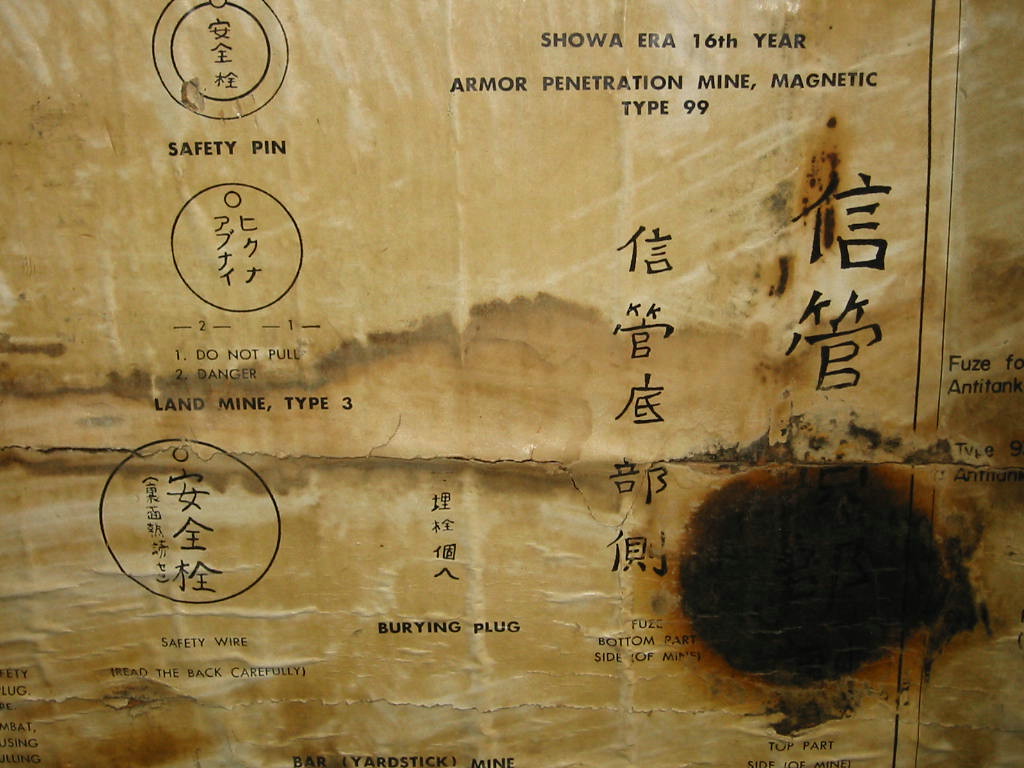 安全栓
SAFETY PIN
ヒクナ
アブナイ
— 2 — — 1 —
1. DO NOT PULL
2. DANGER
LAND MINE, TYPE 3
安全栓
(裏面熟読セヨ)
SAFETY WIRE
(READ THE BACK CAREFULLY)
埋栓個へ
BURYING PLUG
BAR (YARDSTICK) MINE
SHOWA ERA 16th YEAR
ARMOR PENETRATION MINE, MAGNETIC
TYPE 99
信管
信管底部側
FUZE
BOTTOM PART
SIDE (OF MINE)
TOP PART
SIDE (OF MINE)
Fuze fo
Antitank
Type 9
Antitank
FETY
LUG.
PE.
MBAT,
USING
ULLING